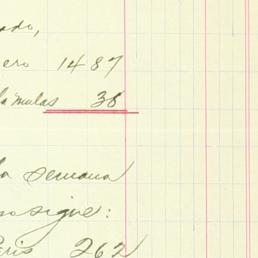 ado,
ero 1487
la mulas 38
la semana
so sigue:
eris 262